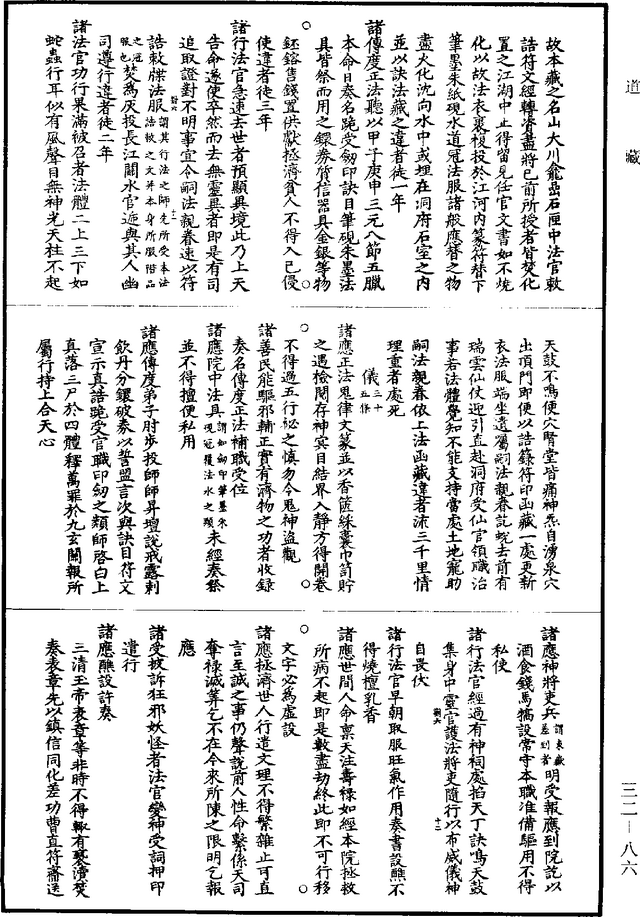 道藏
故本藏之名山大川龕嵒石匣中法官敕
誥符文經轉資盡將已前所授者皆焚化
置之江湖中止得留見任官文書如不燒
化以故法衣裹稷投於江河內篆符替下
筆墨朱紙硯水道冠法服諸般應替之物
盡火化沈向水中或埋在洞府石室之內
並以訣法藏之違者徒一年
諸傳度正法聽以甲子庚申三元八節五臘
本命日奏名跪受劒印訣目筆硯朱墨法
具皆祭而用之鐶券質信器具金銀等物
鈺鎔售錢置供獻拯濟貧人不得入己侵
使違者徒三年
諸行法官急速去世者預顯異境此乃上天
告命遂使卒然而去無靈異者即是有司
追取證對不明事宜令嗣法親眷速以符
誥敕牒法服謂其行法之師先所受本法法教之文并本身所服階品之冠服也焚為灰投長江關水官遞與其人幽
司遵行違者徒二年
諸法官功行果滿被召者法體二上三下如
蛇蟲行耳似有風聲目無神光天柱不起
天鼓不鳴使穴腎堂皆痛神炁自湧泉穴
出頂門即便以誥籙符印函藏一處更新
衣法服端坐遺屬嗣法親眷託蛻去前有
瑞雲仙仗迎引直赴洞府受仙官領職治
事若法體覺知不能支持當處土地竈助
嗣法親眷依上法函藏違者流三千里情
理重者處死
儀三十五條
諸應正法鬼律文篆並以香篋綵囊巾笥貯
之遇檢閱存神冥目結界入靜方得開卷
不得過五行祕之慎勿令鬼神盜觀
諸善民能驅邪輔正實有濟物之功者收錄
奏名傳度正法補職受位
諸應院中法具謂如劒印筆墨朱硯冠履法水之類未經奏祭
並不得擅便私用
諸應傳度弟子肘步投師師昇壇說戒露剌
飲丹分鐶破券以誓盟言次與訣目符文
宣示真誥跪受官職印劒之類師啓白上
真落三尸於四體釋萬罪於九玄關報所
屬行持上合天心
諸應神將吏兵謂東嶽差到者明受報應到院訖以
酒食錢馬犒設常守本職准備驅用不得
私使
諸行法官經過有神祠處掐天丁訣鳴天鼓
集身中靈官護法將吏隨行以布威儀神
自畏伏
諸行法官早朝取服旺氣作用奏書設醮不
得燒檀乳香
諸應世間人命稟天注壽祿如經本院拯救
所病不起即是數盡劫終此即不可行移
文字必為虛設
諸應拯濟世人行遣文理不得繁雜止可直
言至誠之事仍聲說前人性命繫係天司
奪祿減筭乞不在今來所陳之限明乞報
應
諸受披訴狂邪妖怪者法官變神受詞押印
遣行
諸應醮設許奏
三清玉帝表章等非時不得輒有褻瀆焚
奏表章先以鎮信同化差功曹直符齎送
三二—八六